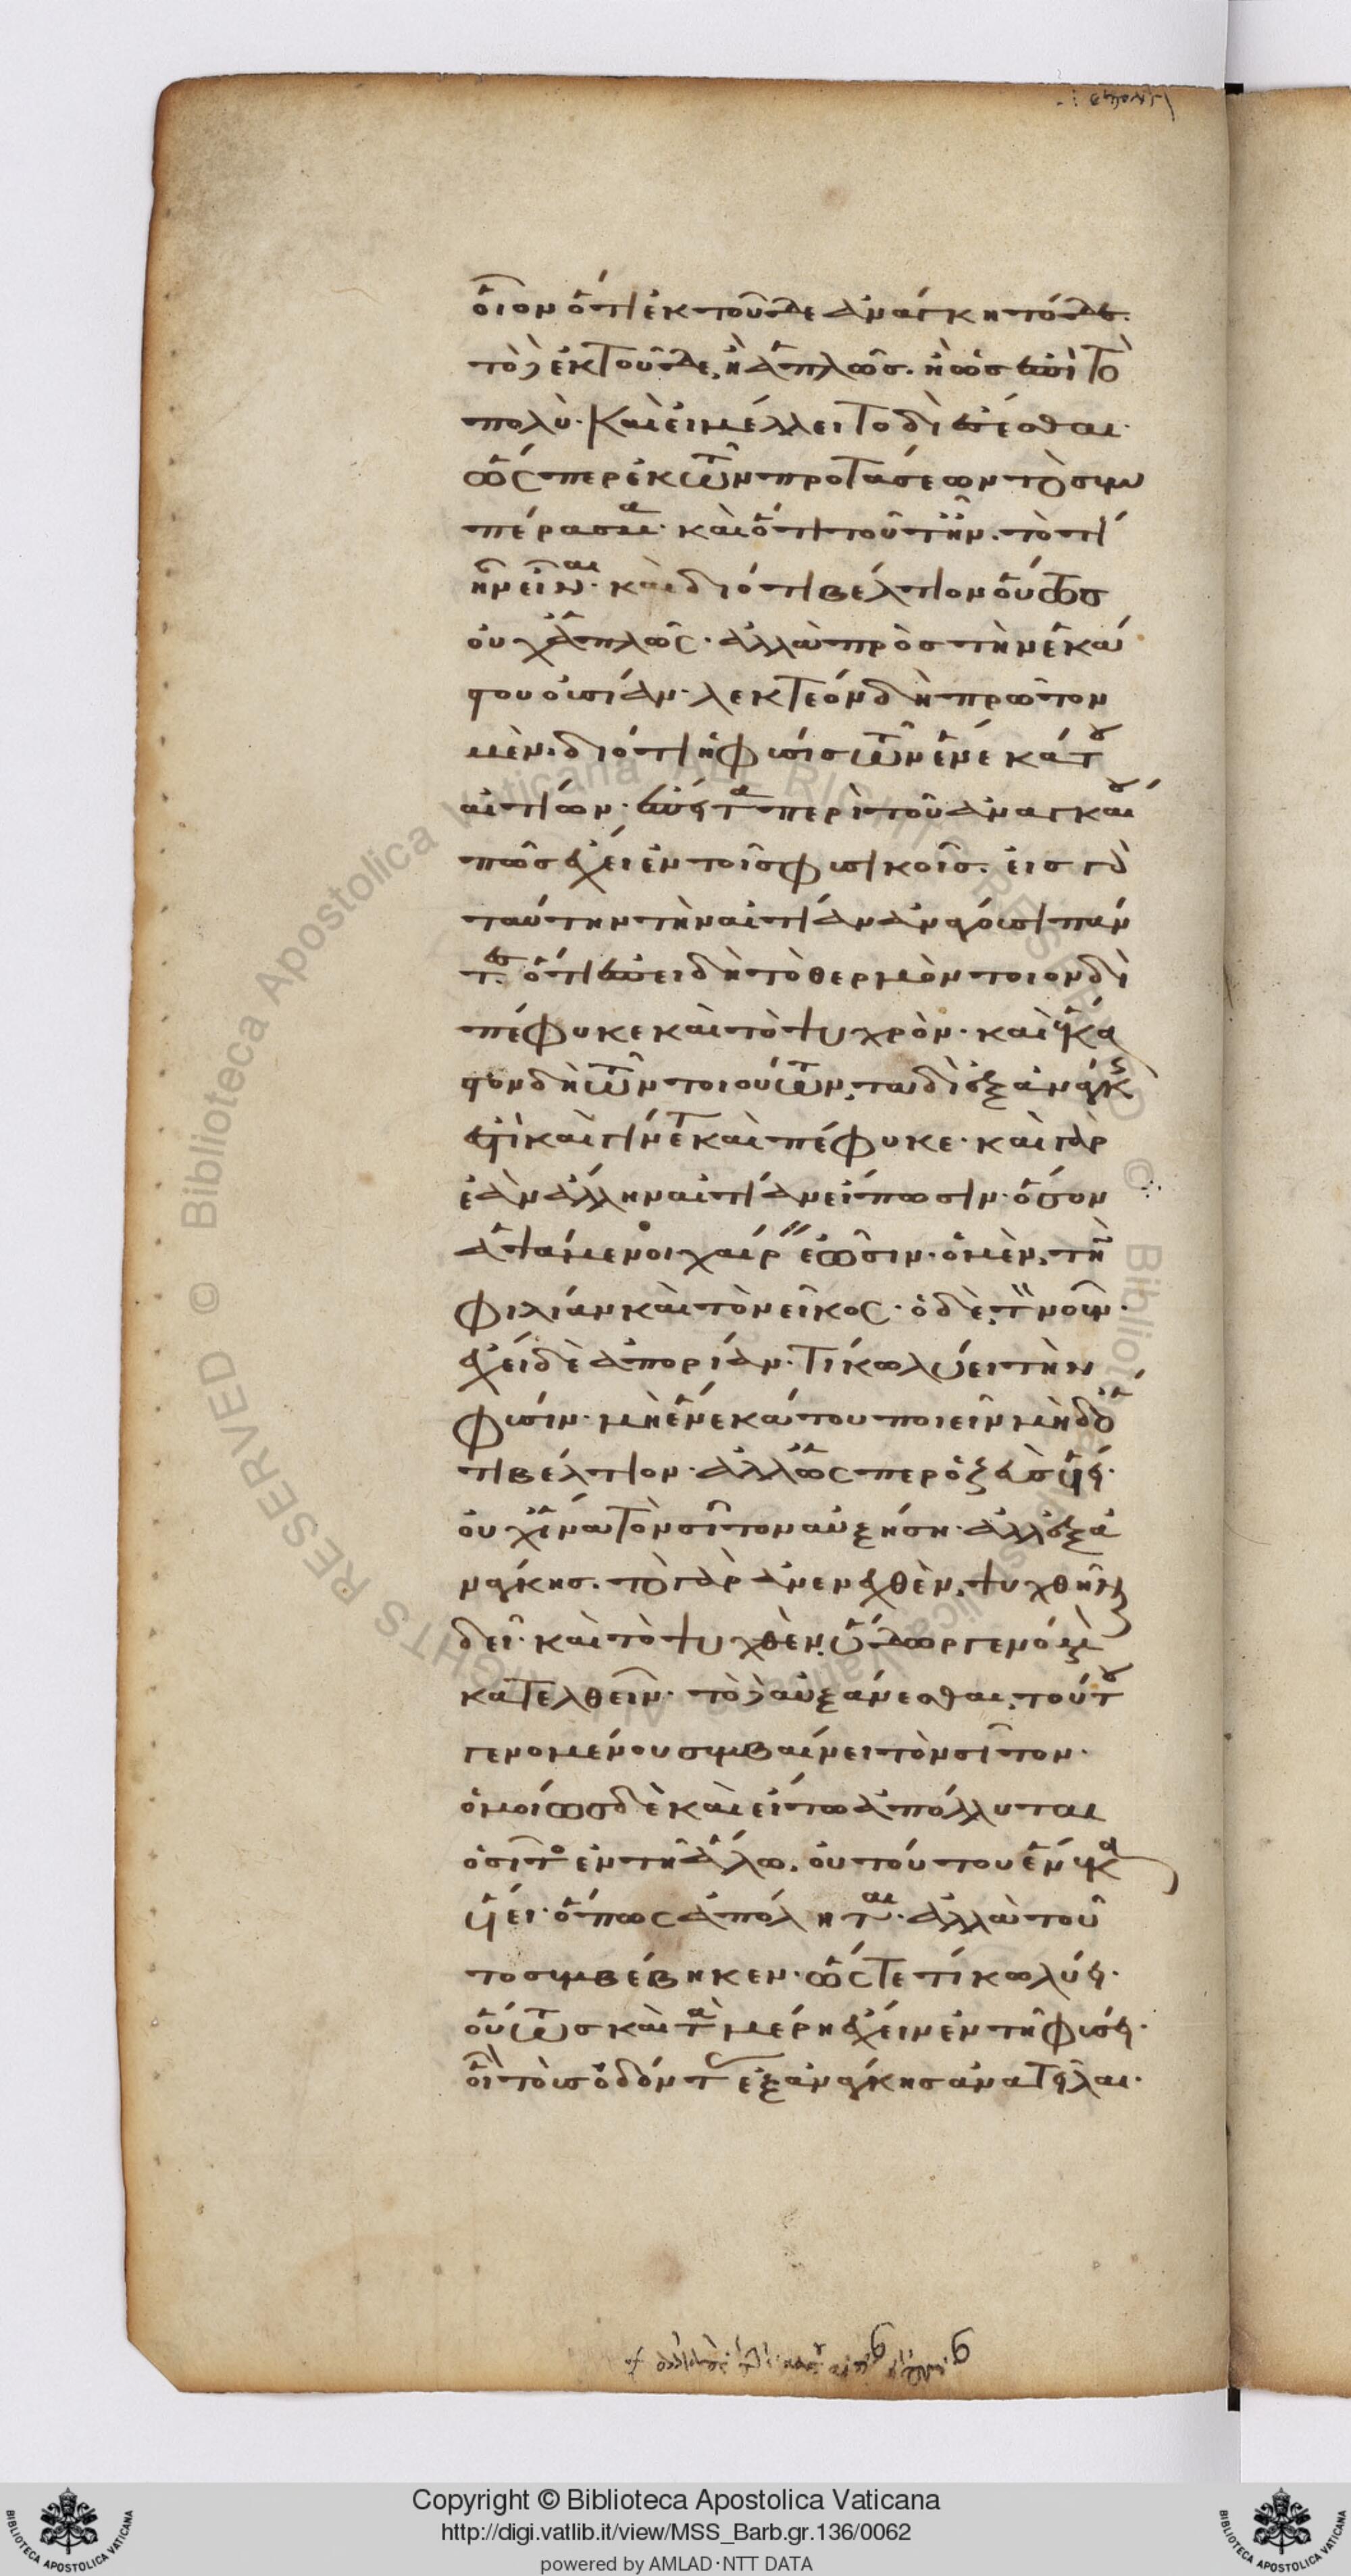 οἷον ὅτι ἐκ τοῦδε ἀνάγκη τόδε.
τὸ δὲ ἐκ τοῦδε, ἢ ἁπλῶς. ἢ ὡς ἐπὶ τὸ
πολὺ· Καὶ εἰ μέλλει τοδὶ ἔσεσθαι·
ὥσπερ ἐκ τῶν προτάσεων τὸ συμ
πέρασμα· καὶ ὅτι τοῦτ' ἦν. τὸ τί
ἦν εἶναι· καὶ διότι βέλτιον οὕτως
οὐχ ἁπλῶς· ἀλλὰ πρὸς τὴν ἑκά
στου οὐσίαν· λεκτέον δὴ πρῶτον
μὲν. διότι ἡ φύσις τῶν ἕνεκά του
αἰτίων· ἔπειτα περὶ τοῦ ἀναγκαίου
πῶς ἔχει ἐν τοῖς φυσικοῖς. εἰς γὰρ
ταύτην τὴν αἰτίαν ἀνάγουσι πάν
τες. ὅτι ἐπειδὴ τὸ θερμὸν τοιονδὶ
πέφυκε καὶ τὸ ψυχρὸν· καὶ ἕκα
στον δὴ τῶν τοιούτων, ταδὶ ἐξ ἀνάγκης
ἐστὶ καὶ γίνεται καὶ πέφυκε· καὶ γὰρ
ἐὰν ἄλλην αἰτίαν εἴπωσιν· ὅσον
ἁψάμενοι χαίρειν ἐῶσιν· ὁ μὲν, τὴν
φιλίαν καὶ τὸ νεῖκος· ὁ δὲ, τὸν νοῦν·
ἔχει δὲ ἀπορίαν· τί κωλύει τὴν
φύσιν· μὴ ἕνεκά του ποιεῖν μηδ' ὅ
τι βέλτιον· ἀλλ' ὥσπερ ὁ ζεὺς ὕει·
οὐχ ἵνα τὸν σῖτον αὐξήσῃ· ἀλλ' ἐξ ἀ
νάγκης. τὸ γὰρ ἀνενεχθὲν, ψυχθῆναι
δεῖ· καὶ τὸ ψυχθὲν, ὕδωρ γενόμενον
κατελθεῖν· τὸ δ' αὐξάνεσθαι, τούτου
γενομένου συμβαίνει τὸν σῖτον·
ὁμοίως δὲ καὶ εἴ τῳ ἀπόλλυται
ὁ σῖτος ἐν τῇ ἅλῳ. οὐ τούτου ἕνεκα
ὕει· ὅπως ἀπόληται· ἀλλὰ τοῦ
το συμβέβηκεν· ὥστε τί κωλύει·
οὕτως καὶ τὰ μέρη ἔχειν ἐν τῇ φύσει·
οἷον τοὺς ὀδόντας ἐξ ἀνάγκης ἀνατεῖλαι·
Copyright © Biblioteca Apostolica Vaticana
http://digi.vatlib.it/view/MSS_Barb.gr.136/0062
powered by AMLAD·NTT DATA